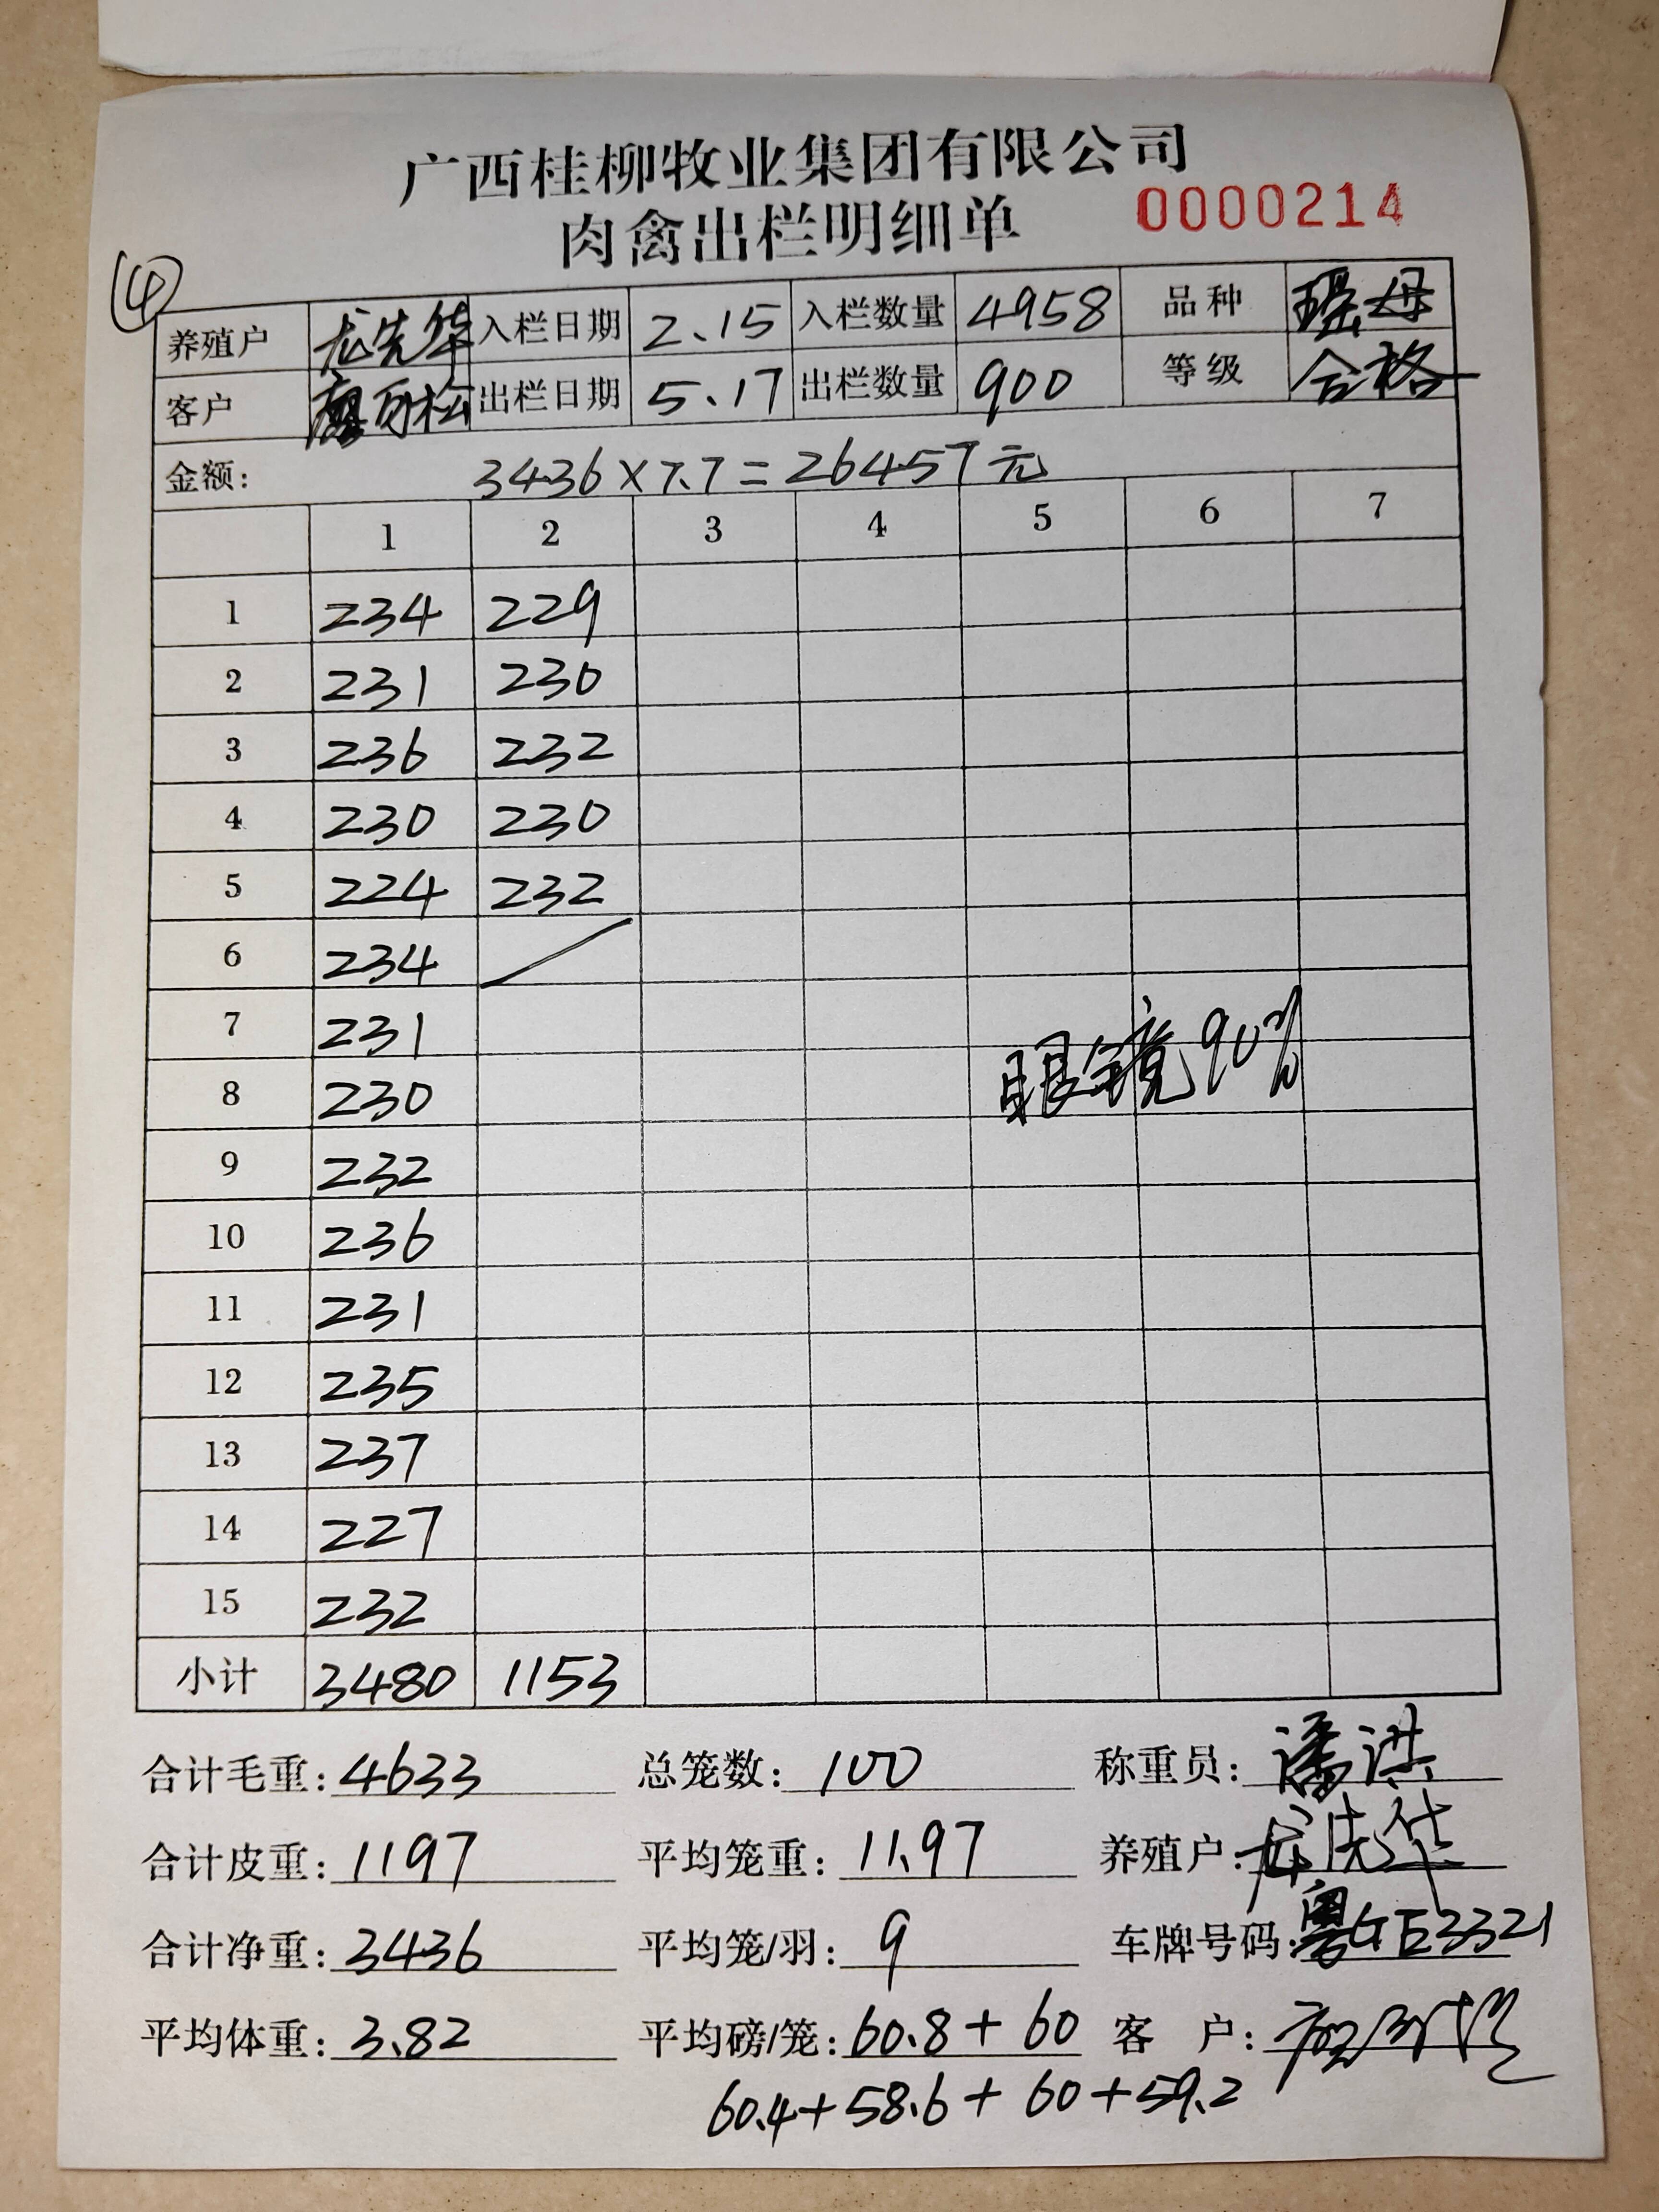 广西桂柳牧业集团有限公司
肉禽出栏明细单 0000214
④
养殖户 龙先华 入栏日期 2.15 入栏数量 4958 品种 瑶母
客户 廖百松 出栏日期 5.17 出栏数量 900 等级 合格
金额: 3436×7.7=26457元
1 2 3 4 5 6 7
1 234 229
2 231 230
3 236 232
4 230 230
5 224 232
6 234 /
7 231
8 230 眼镜90%
9 232
10 236
11 231
12 235
13 237
14 227
15 232
小计 3480 1153
合计毛重: 4633 总笼数: 100 称重员: 潘洪
合计皮重: 1197 平均笼重: 11.97 养殖户: 龙先华
合计净重: 3436 平均笼/羽: 9 车牌号码: 粤GE3321
平均体重: 3.82 平均磅/笼: 60.8+60 客 户:
60.4+58.6+60+59.2